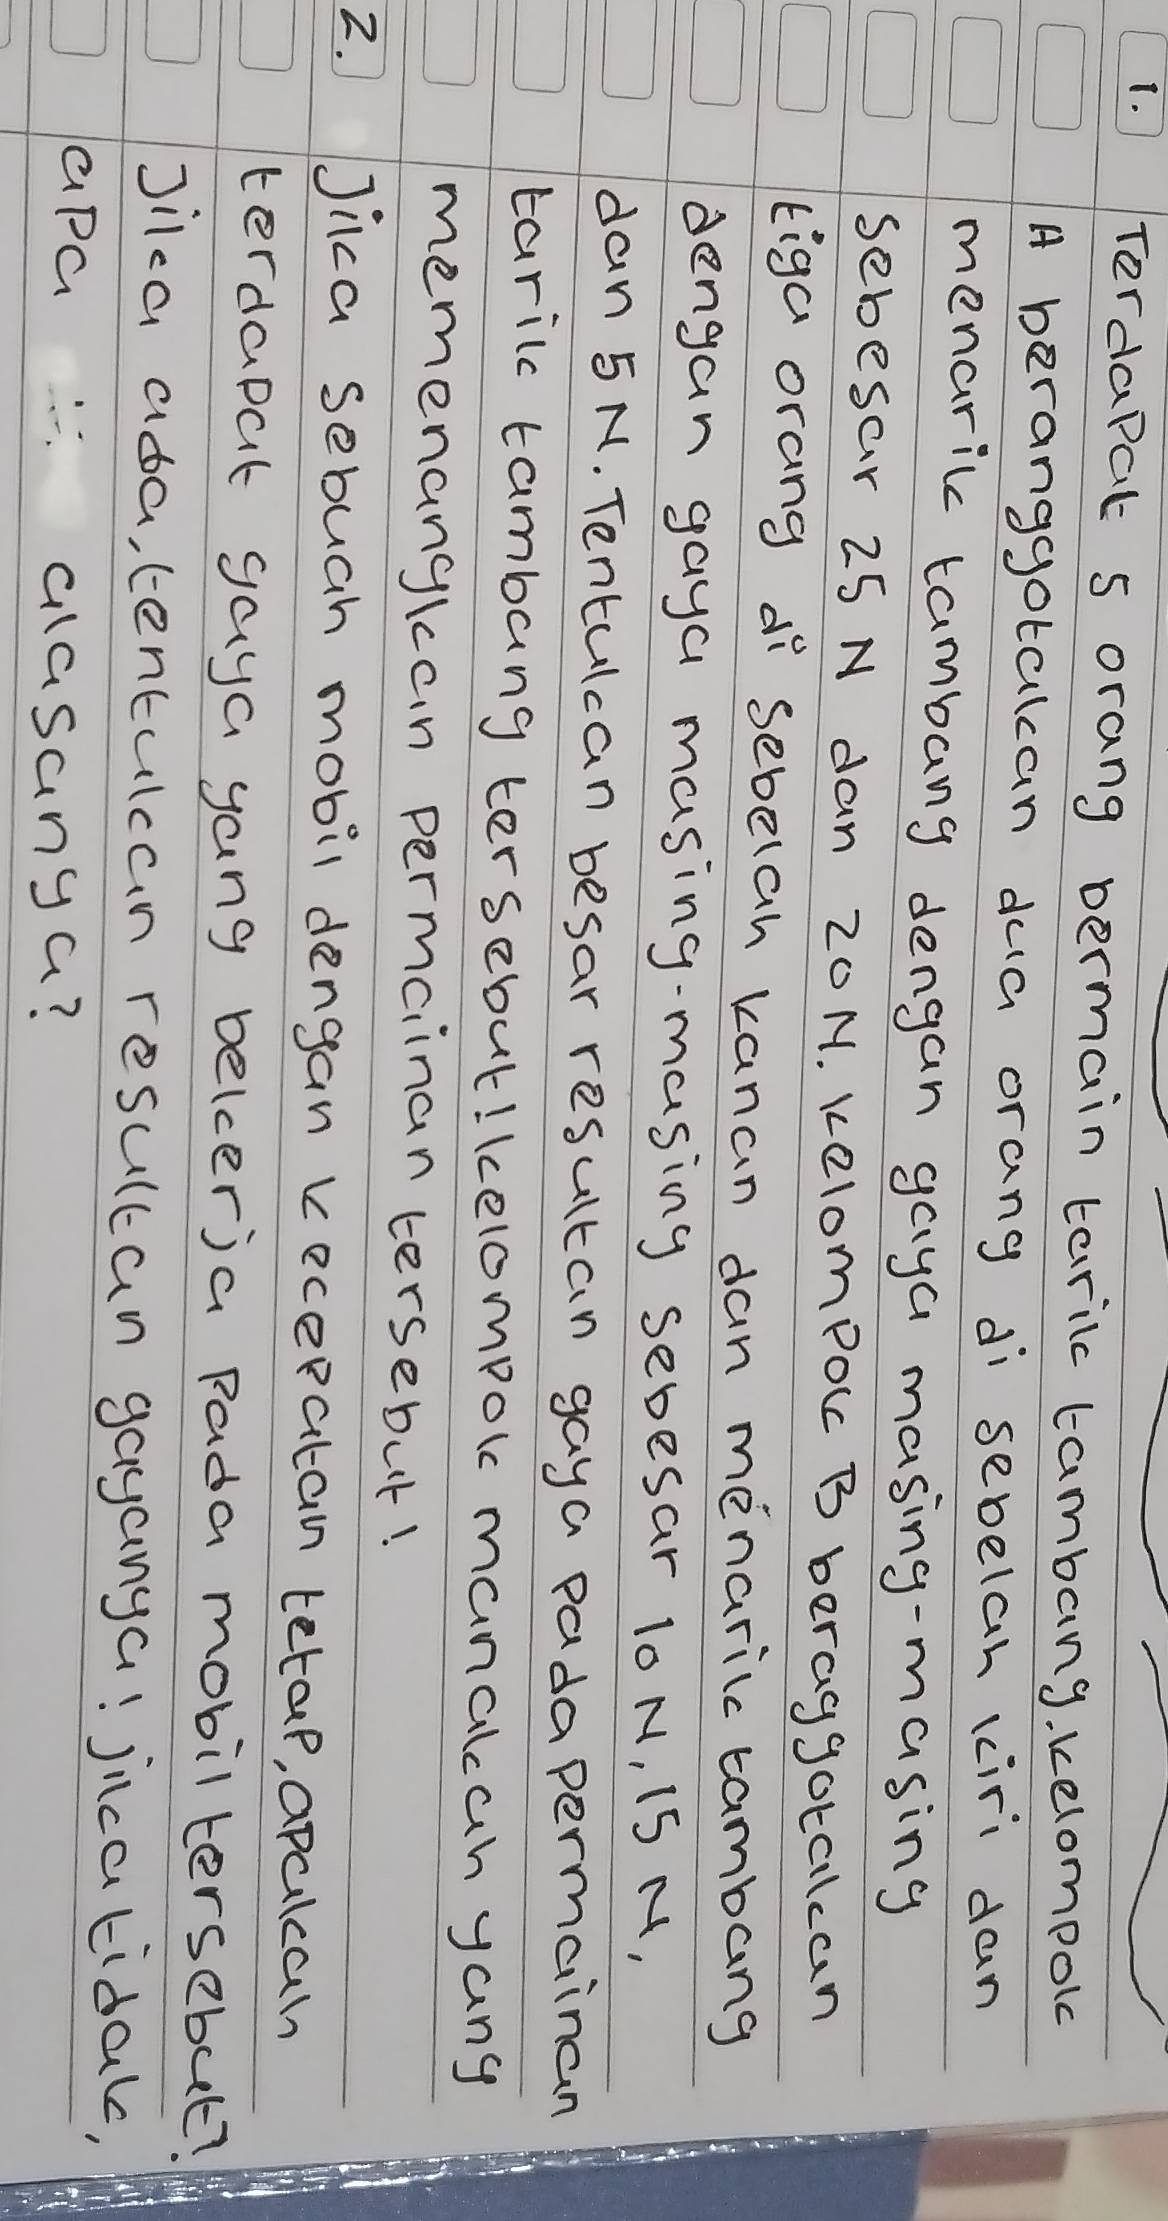 1. Terdapat 5 orang bermain tarik tambang. Kelompok
A beranggotakan dua orang di sebelah kiri dan
menarik tambang dengan gaya masing-masing
sebesar 25 N dan 20 N. Kelompok B beraggotakan
tiga orang di sebelah kanan dan menarik tambang
dengan gaya masing-masing sebesar 10 N, 15 N,
dan 5 N. Tentukan besar resultan gaya pada permainan
tarik tambang tersebut! kelompok manakah yang
memenangkan permainan tersebut!
2. Jika sebuah mobil dengan kecepatan tetap, apakah
terdapat gaya yang bekerja pada mobil tersebut?
Jika ada, tentukan resultan gayanya! jika tidak,
apa alasanya?